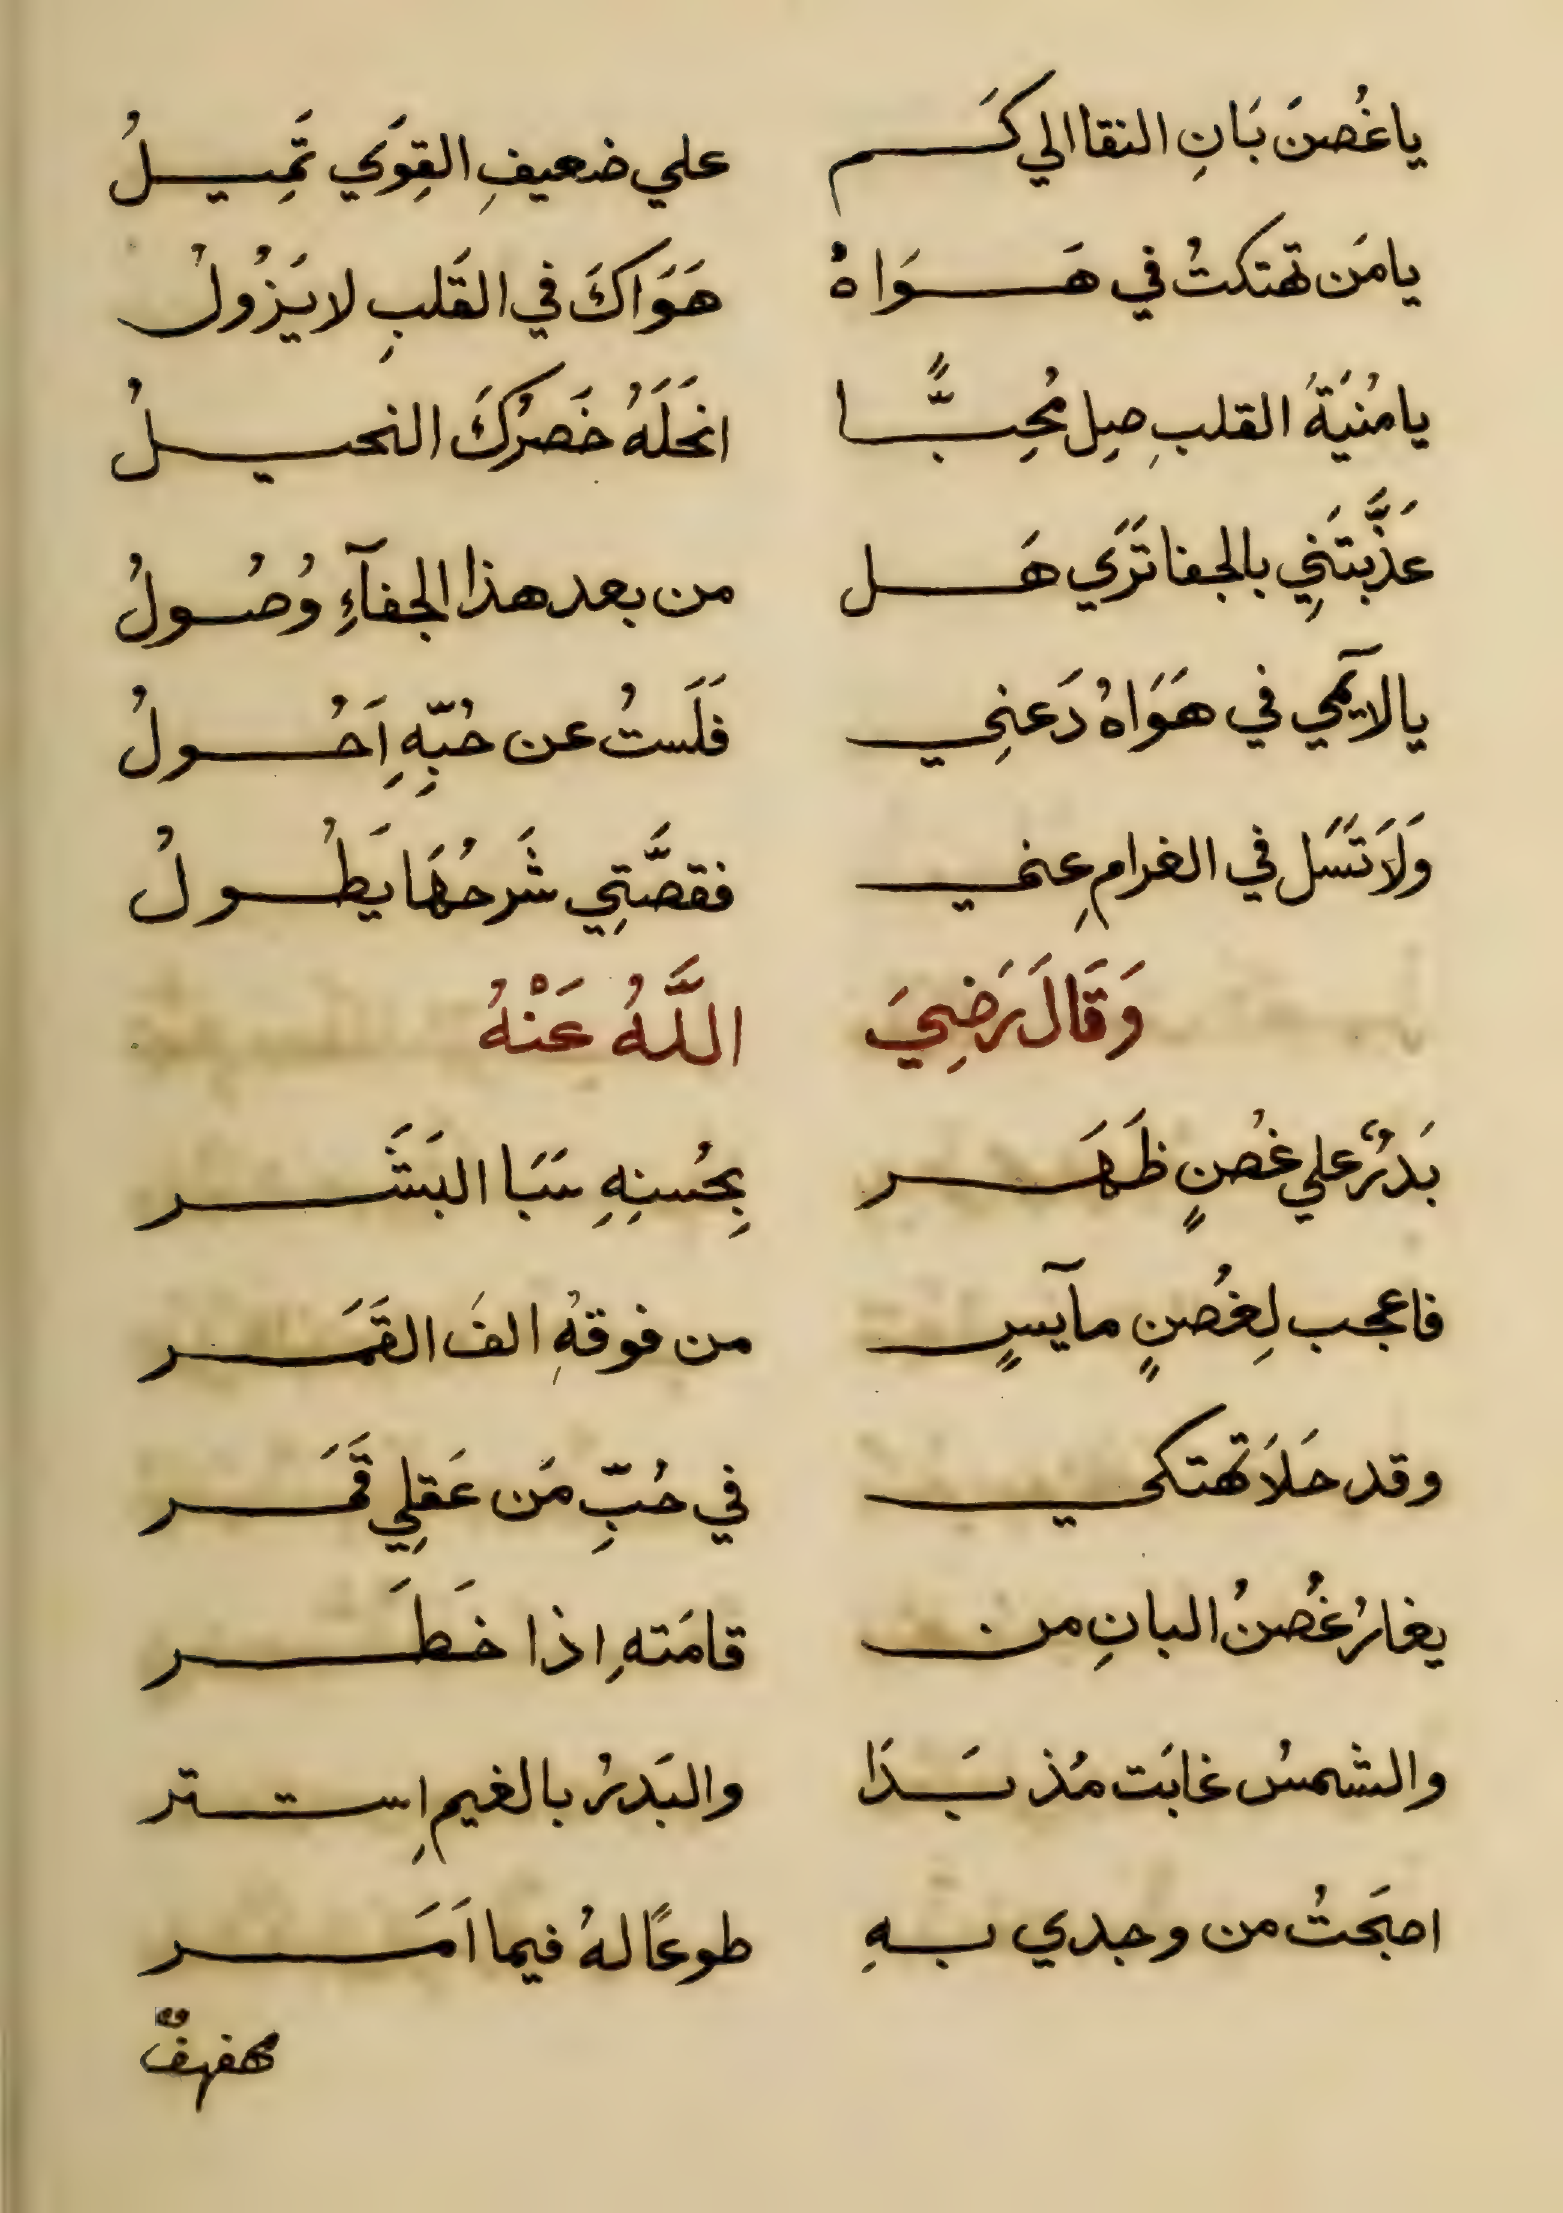 ياغُصنَ بَانِ النقا الي كَم علي ضعيفِ القِوَي تَمِيلُ
يامَن تهتكتُ في هَوَاهُ هَوَاكَ في القَلبِ لايَزُولُ
يامُنيَةَ القلبِ صِل مُحِبًّا انحَلَهُ خَصرُكَ النحيلُ
عَذَّبتَنِي بالجفا تَرَي هَل من بعد هذا الجفآءِ وُصُولُ
يالآيمي في هَوَاهُ دَعنِي فَلَستُ عن حُبِّهِ اَحُولُ
وَلَا تَسَل في الغرامِ عني فقصَّتِي شَرحُهَا يَطُولُ
وَقَالَ رَضِيَ اللَّهُ عَنْهُ
بَدرٌ علي غُصنٍ ظَهَر بِحُسنِهِ سَبَا البَشَر
فاعجب لِغُصنٍ مآيسٍ من فوقهِ الفَ القَمَر
وقد حَلَا تَهتكي في حُبِّ مَن عَقلِي قَمَر
يغارُ غُصنُ البانِ من قامَتهِ اذا خَطَر
والشمسُ غابَت مُذ بَدَا والبَدرُ بالغيمِ استتر
اصبَحتُ من وجدي بهِ طوعًا لهُ فيما اَمَر
مهفهفٌ